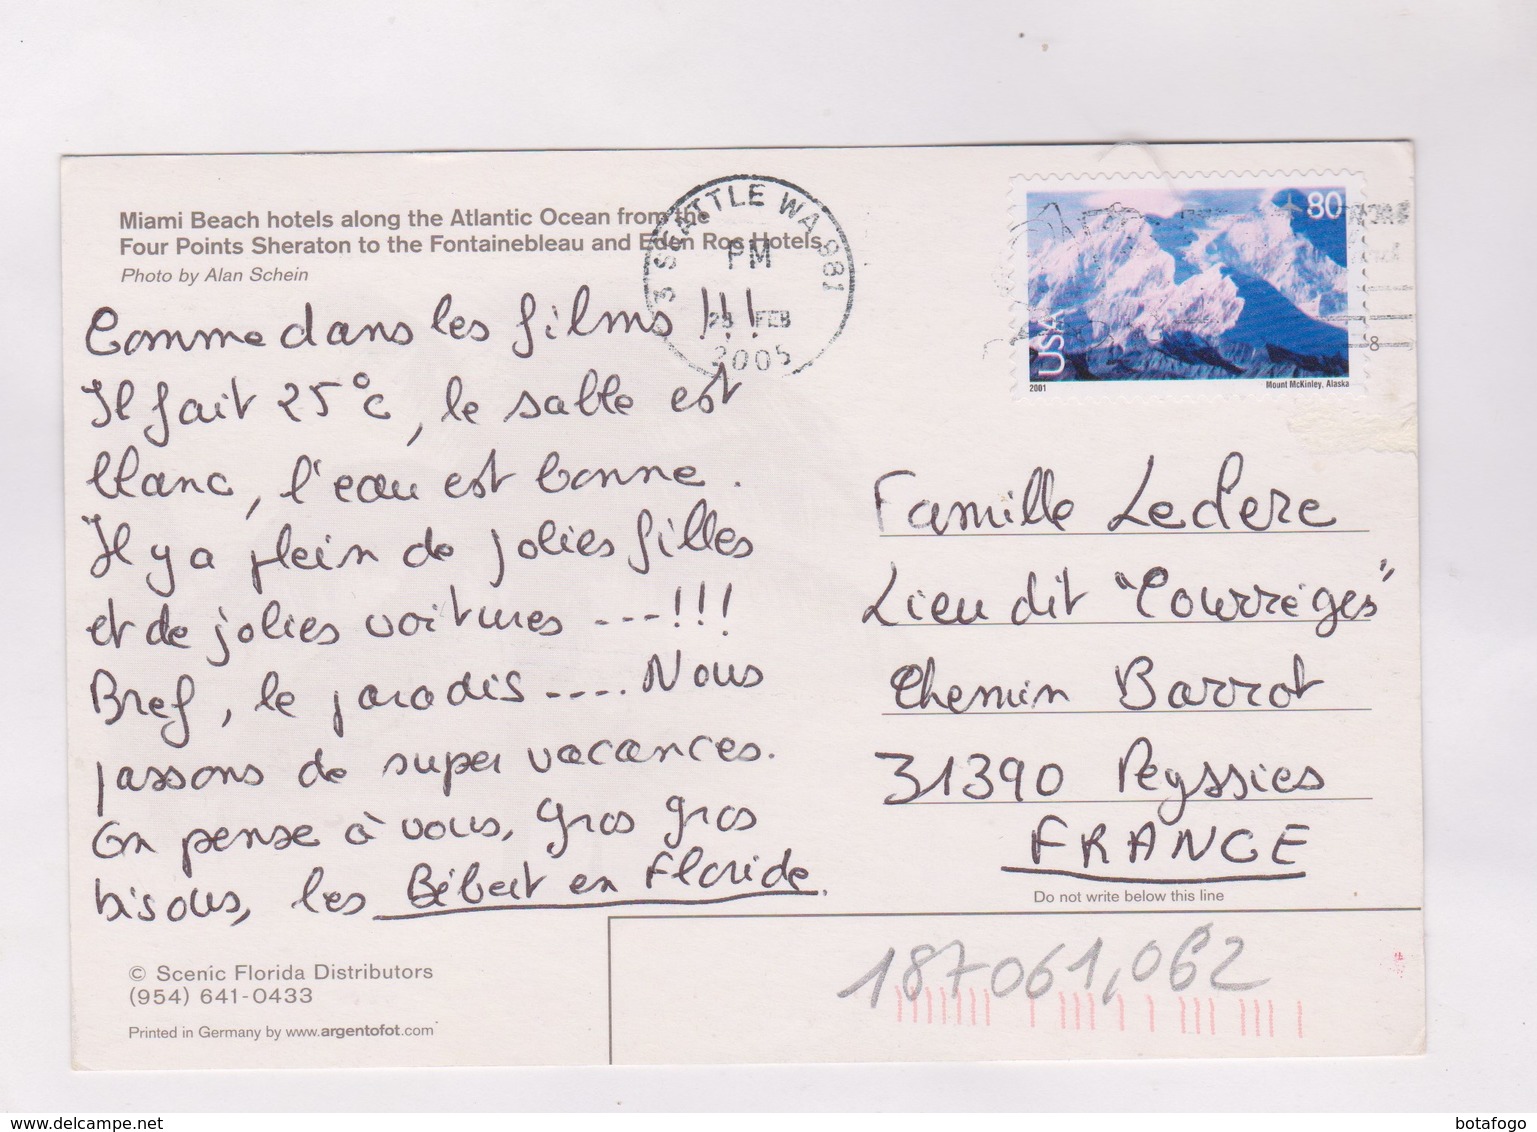 Miami Beach hotels along the Atlantic Ocean from the
Four Points Sheraton to the Fontainebleau and Eden Roc Hotels
Photo by Alan Schein
SEATTLE WA 981 3
PM
23 FEB
2005
80
USA
2001
Mount McKinley, Alaska
8
Comme dans les films !!!
Il fait 25°c, le sable est
blanc, l'eau est bonne.
Il y a plein de jolies filles
et de jolies voitures ---!!!
Bref, le paradis .... Nous
passons de super vacances.
On pense à vous, gros gros
bisous, les Bébert en Floride.
Famille Leclere
Lieu dit "Courrèges"
Chemin Barrot
31390 Peyssies
FRANCE
Do not write below this line
187061,062
© Scenic Florida Distributors
(954) 641-0433
Printed in Germany by www.argentofot.com
www.delcampe.net
botafogo